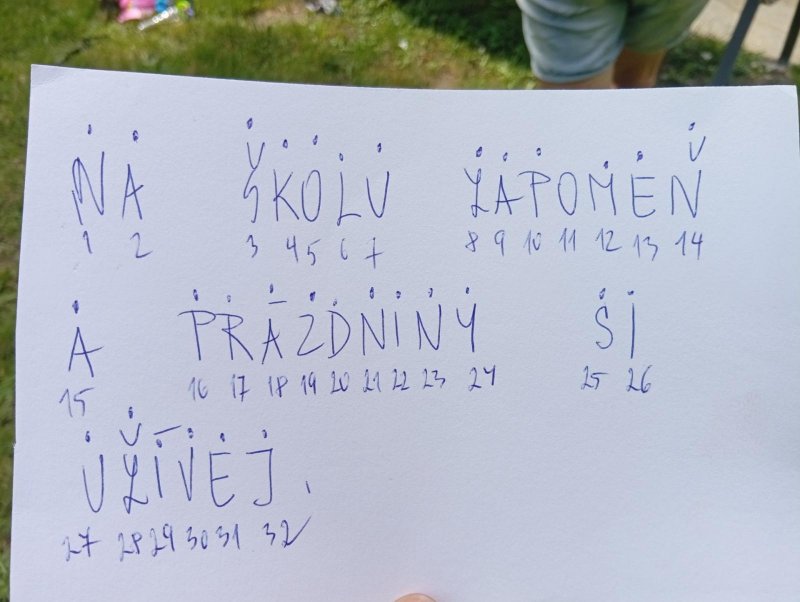 NA ŠKOLU ZAPOMEŇ
1 2 3 4 5 6 7 8 9 10 11 12 13 14
A PRÁZDNINY SI
15 16 17 18 19 20 21 22 23 24 25 26
UŽÍVEJ.
27 28 29 30 31 32